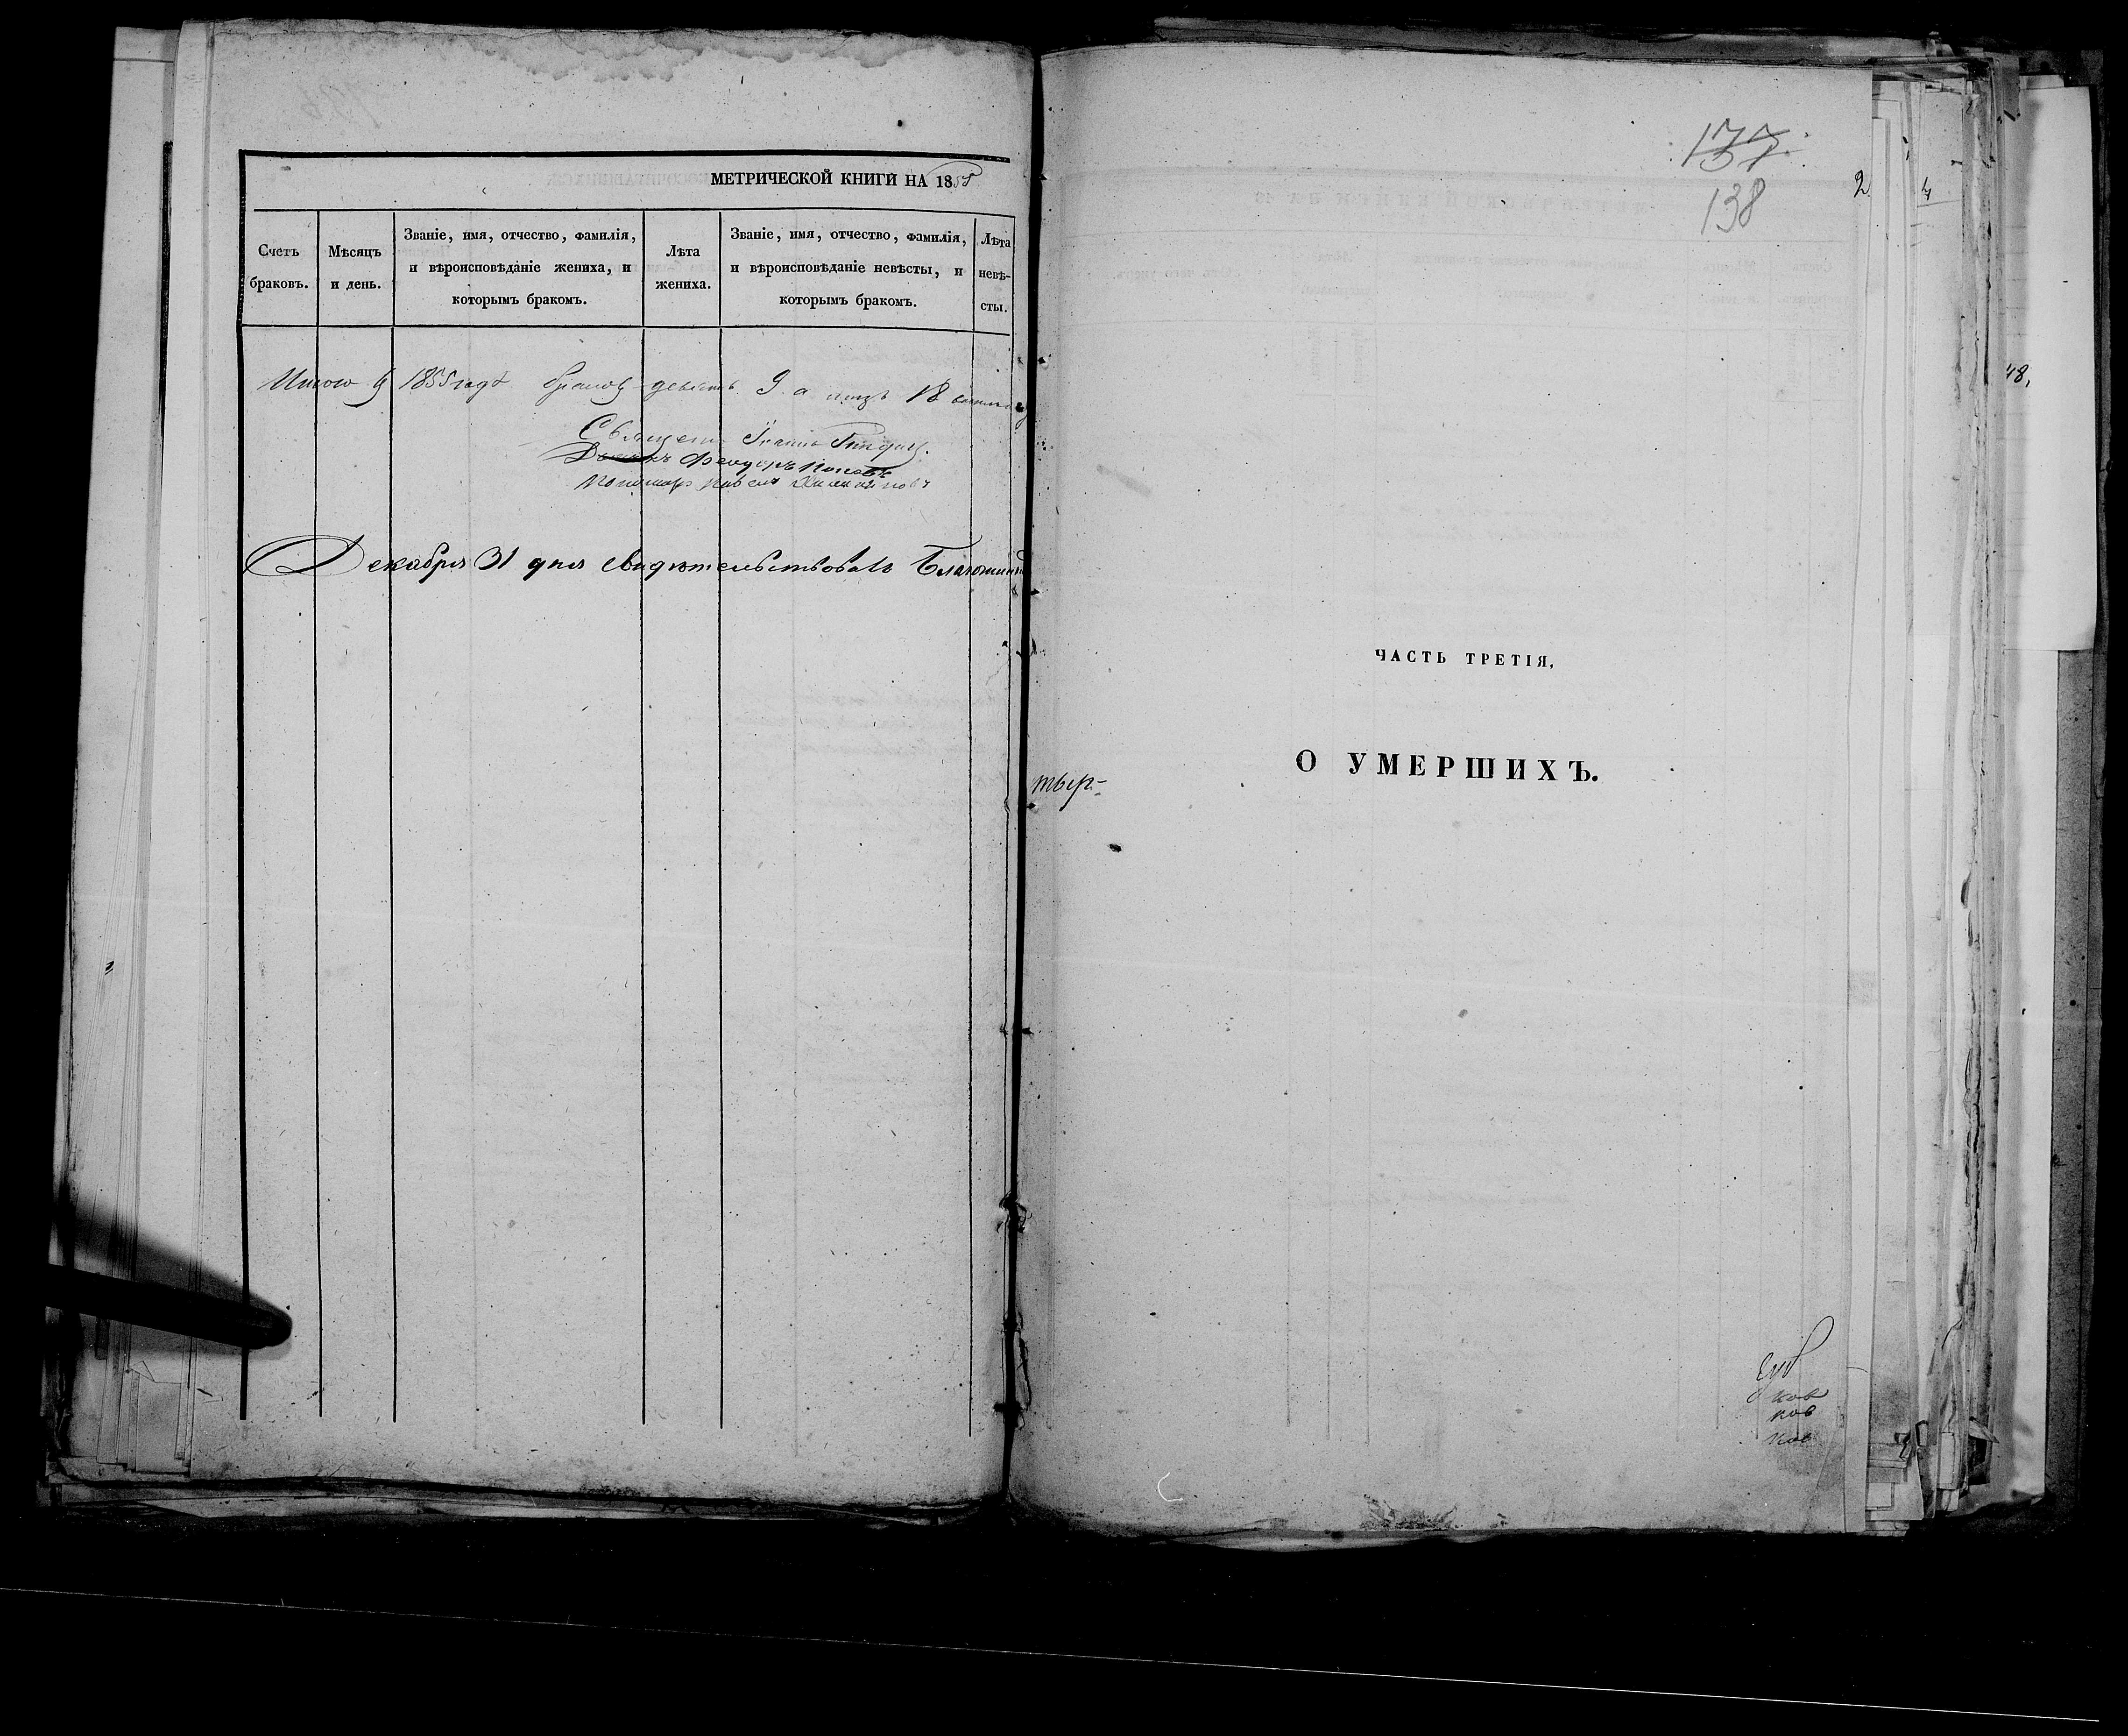 МЕТРИЧЕСКОЙ КНИГИ НА 1855
Счетъ браковъ.
Мѣсяцъ и день.
Званіе, имя, отчество, фамилія,
и вѣроисповѣданіе жениха, и
которымъ бракомъ.
Лѣта жениха.
Званіе, имя, отчество, фамилія,
и вѣроисповѣданіе невѣсты, и
которымъ бракомъ.
Лѣта невѣ-
сты.
Итого въ 1855 годѣ браковъ девять 9 а лицъ 18
Священ. Іоаннъ
Дьячекъ Феодоръ Поповъ
Пономарь Павелъ
Декабря 31 дня свидѣтельствовалъ Благочинный
137
138
ЧАСТЬ ТРЕТІЯ,
О УМЕРШИХЪ.
твер-
ков
ков
2
4
48,